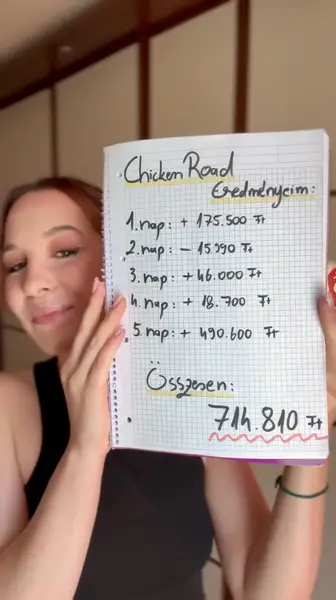 Chicken Road
Eredményeim:
1. nap: + 175.500 Ft
2. nap: - 15.990 Ft
3. nap: + 46.000 Ft
4. nap: + 18.700 Ft
5. nap: + 490.600 Ft
Összesen:
714.810 Ft